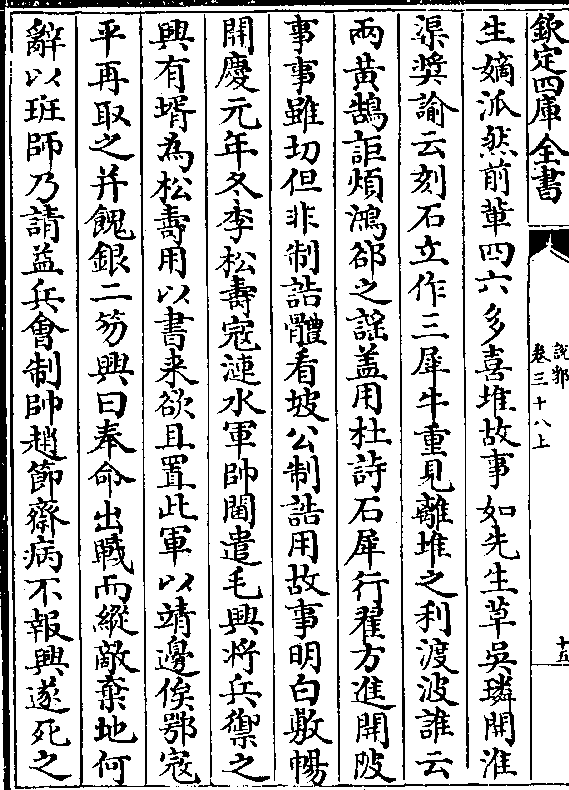 欽定四庫全書
説郛
卷三十八上
十五
生嫡派然前輩四六多喜堆故事如先生草吳璘開淮
渠奨諭云刻石立作三犀牛重見離堆之利渡波誰云
兩黄鵠詎煩鴻郤之謡盖用杜詩石犀行翟方進開陂
事事雖切但非制誥體看坡公制誥用故事明白敷暢
開慶元年冬李松壽寇漣水軍帥閫遣毛興將兵禦之
興有壻為松壽用以書来欲且置此軍以靖邊俟鄂寇
平再取之并餽銀二笏興曰奉命出戰而縱敵棄地何
辭以班師乃請益兵會制帥趙節齋病不報興遂死之